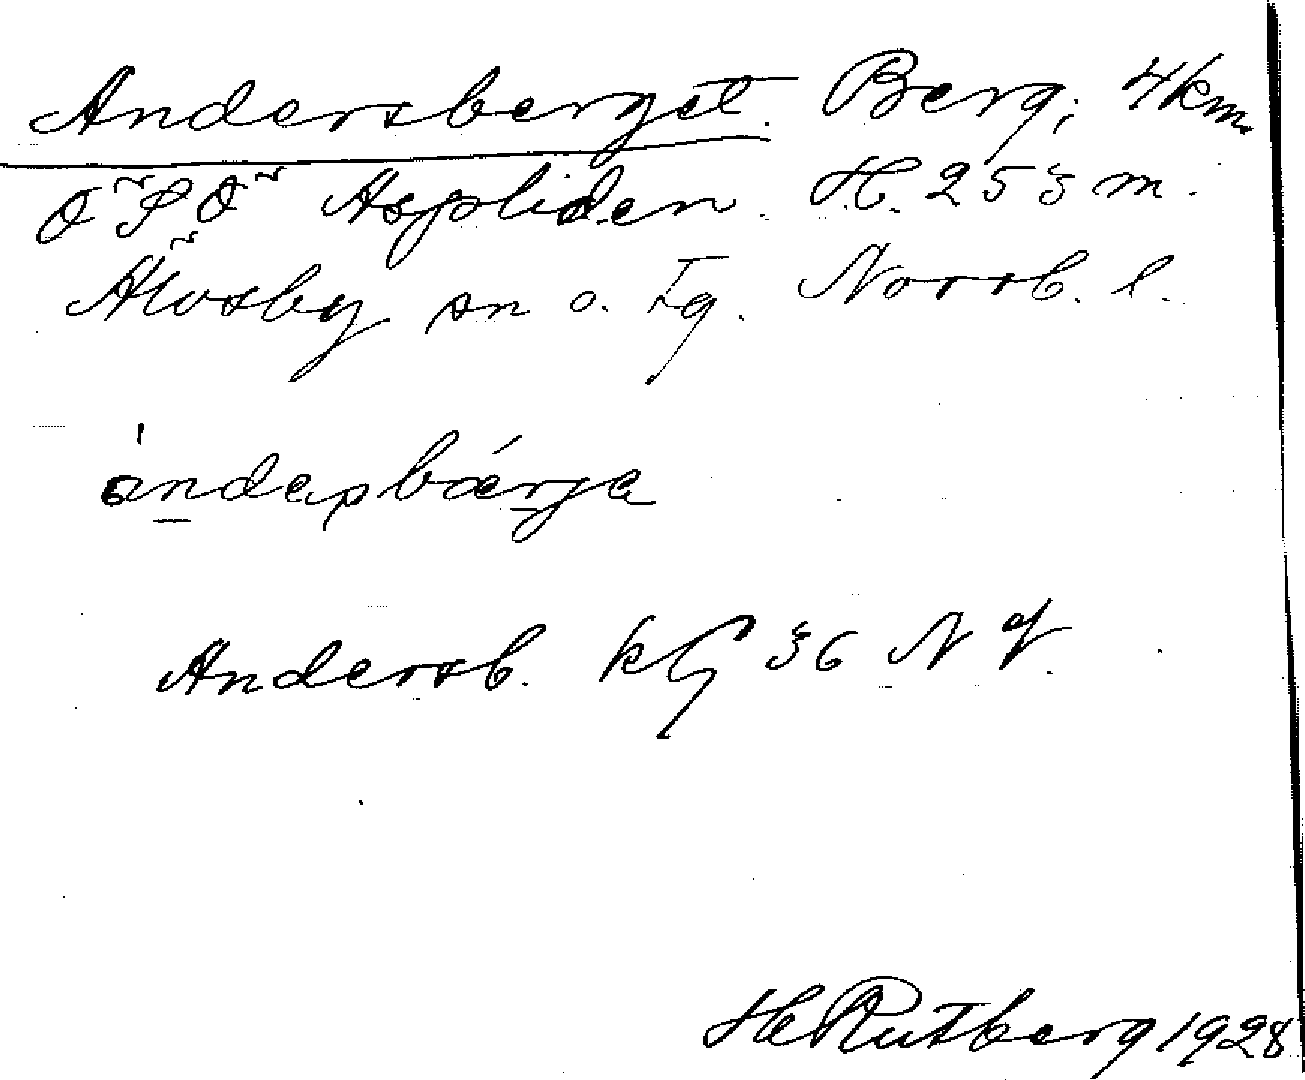 Andersberget. Berg, 4 km
ÖSÖ Aspliden. H. 253 m.
Älvsby sn o. tg. Norrb. l.
ándaʂbárja
Andersb. kG 36 N V.
H Rutberg 1928